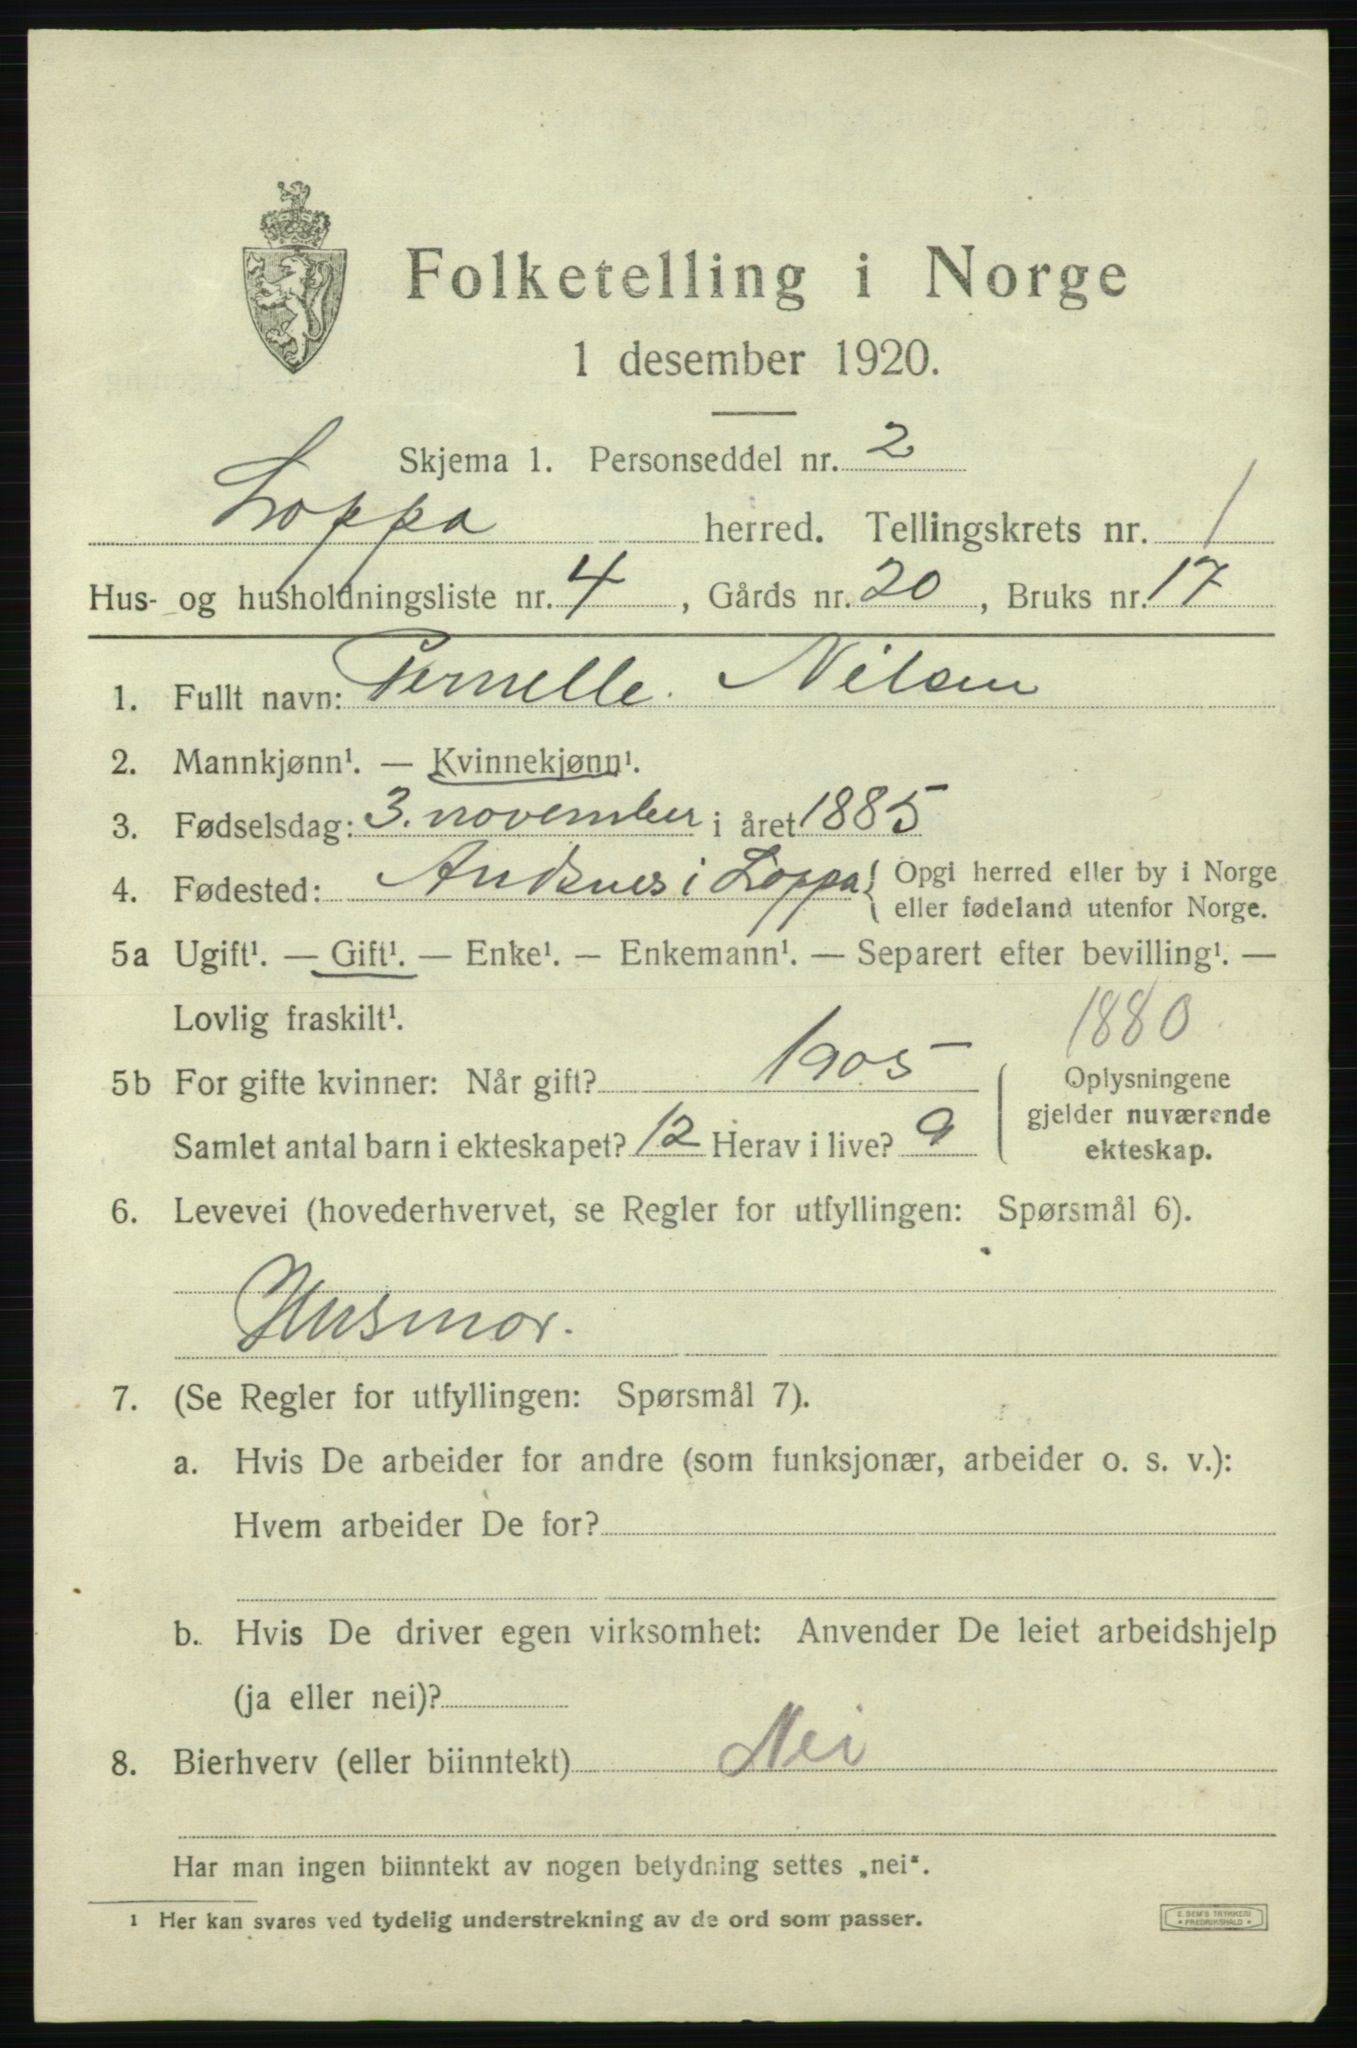 Folketelling i Norge
1 desember 1920.
Skjema 1. Personseddel nr. 2
Loppa herred. Tellingskrets nr. 1
Hus- og husholdningsliste nr. 4, Gårds nr. 20, Bruks nr. 17
1. Fullt navn: Pernelle Nilsen
2. Mannkjønn¹. — Kvinnekjønn¹.
3. Fødselsdag: 3. november i året 1885
4. Fødested: Andsnes i Loppa { Opgi herred eller by i Norge
eller fødeland utenfor Norge.
5a Ugift¹. — Gift¹. — Enke¹. — Enkemann¹. — Separert efter bevilling¹. —
Lovlig fraskilt¹. 1880
5b For gifte kvinner: Når gift? 1905 Oplysningene
gjelder nuværende
Samlet antal barn i ekteskapet? 12 Herav i live? 9 ekteskap.
6. Levevei (hovederhvervet, se Regler for utfyllingen: Spørsmål 6).
Husmor.
7. (Se Regler for utfyllingen: Spørsmål 7).
a. Hvis De arbeider for andre (som funksjonær, arbeider o. s. v.):
Hvem arbeider De for?
b. Hvis De driver egen virksomhet: Anvender De leiet arbeidshjelp
(ja eller nei)?
8. Bierhverv (eller biinntekt) Nei
Har man ingen biinntekt av nogen betydning settes „nei“.
1 Her kan svares ved tydelig understrekning av de ord som passer.
E. SEM'S TRYKKERI
• FREDRIKSHALD •